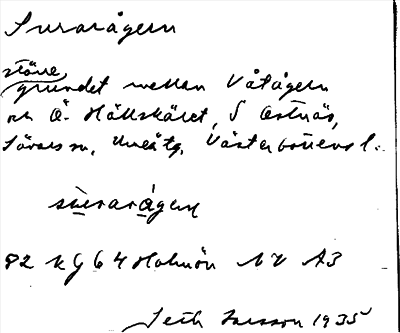 Svararågern
större
grundet mellan Våtågern
och Ö. Hällskäret, S Ostnäs,
Sävars sn, Umeå tg, Västerbottens l.
82 Kg 64 Holmön NV A3
Seth Larsson 1935